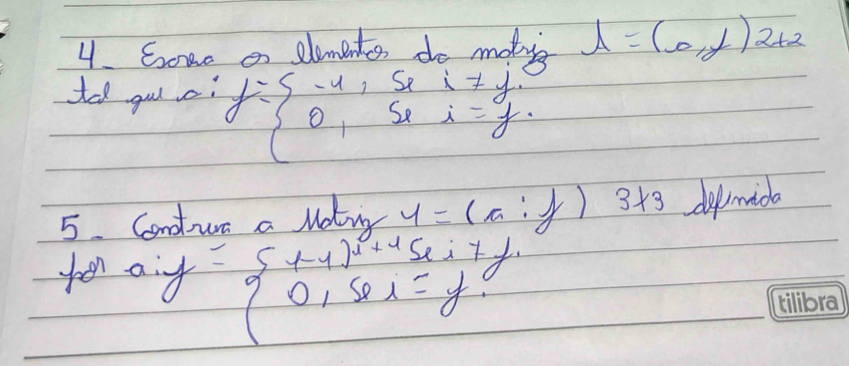 4- Escreva os elementos da matriz A = (a,j) 2x2
tal que a i j = { -1, Se i ≠ j.
0, Se i = j.
5- Construa a Matriz 4 = (a i j) 3x3 definida
por a i j = { (-1)^i+1 Se i ≠ j.
0, Se i = j.
tilibra